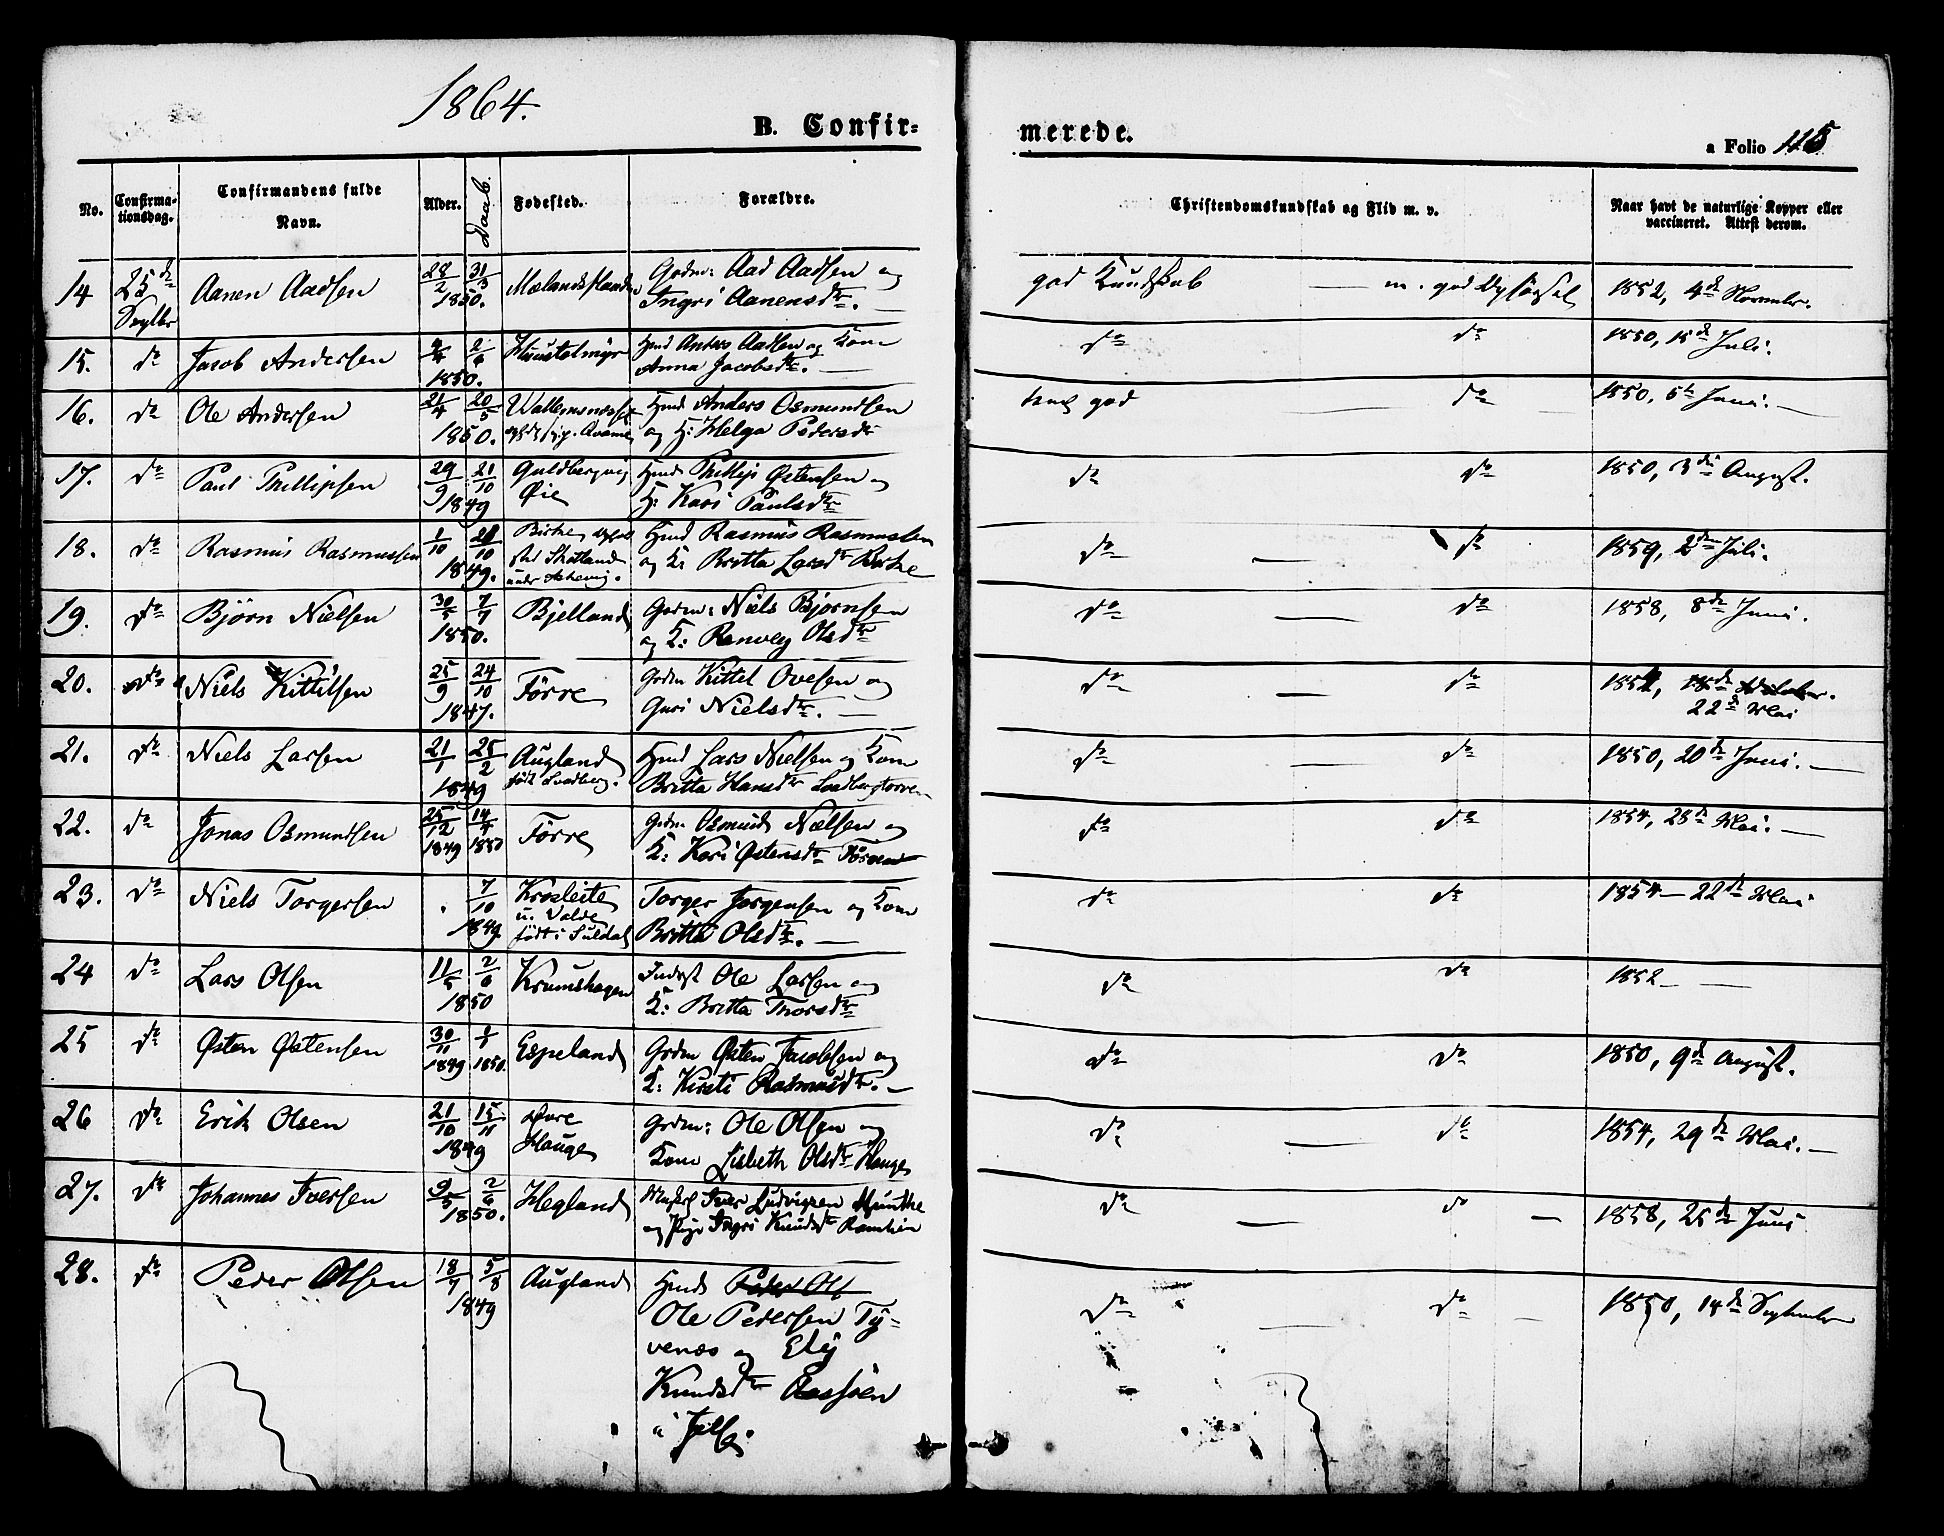 1864.
B. Confir= merede. a Folio 115
No. Confirma-tionsdag. Confirmandens fulde Navn. Alder. Daab. Fødested. Forældre. Christendomskundskab og Flid m. v. Naar havt de naturlige Kopper eller vaccineret. Attest derom.
14 25de Septbr Aanen Aadsen 28/2 31/3 1850. Gdm: Aad Aadsen og Ingri Aanensdtr. — god Kundskab — m. god Opførsel 1852, 4de November.
15. do Jacob Andersen 2/6 1850. Hmd Anders Aadsen og Kone Anna Jacobsdtr. — do do 1850, 15de Juli.
16. do Ole Andersen 21/4 20/5 1850. Hmd Anders Osmundsen og K: Helga Pedersdtr god — do — 1850, 5te Juni. —
17. do Paul Phillipsen 29/9 21/10 1849 Guldbergvig Øie Hmd Phillip Østensen og K: Kari Paulsdtr do do 1850, 3die August.
18. do Rasmus Rasmussen 1/10 28/10 1849. Birke Hmd Rasmus Rasmussen og K: Britta Larsdtr Birke do — do 1859, 2den Juli.
19. do Bjørn Nielsen 30/5 7/7 1850. Bjelland Gdm: Niels Bjørnsen og K: Ranveg Olsdtr do — do 1858, 8de Juni.
20. do Niels Kittilsen 25/9 24/10 1847. Førre Gdm Kittel Ovesen og Guri Nielsdtr. — do — do 1854, 22de Mai
21. do Niels Larsen 21/1 25/2 1849 Augland født Svadberg. Hmd Lars Nielsen og Kone Britta Hansdtr do — do 1850, 20de Juni. —
22. do Jonas Osmundsen 25/12 1849 14/4 1850 Førre Gdm Osmund Nielsen og K: Kari Østensdtr do do 1854, 28de Mai. —
23. do Niels Torgersen . 7/10 1849. Krosleite u. Valde født i Suldal Torger Jørgensen og Kone Britta Olsdtr. — do do 1854 — 22de Mai
24 do Lars Olsen 11/5 2/6 1850 Krumshagen Inderst Ole Larsen og K: Britta Thorsdtr do do 1852 — —
25 do Østen Østensen 30/11 1849 1/1 1850. Espeland Gdm Østen Jacobsen og K: Kirsti Rasmusdtr. — do do 1850, 9de August.
26 do Erik Olsen 21/10 15/11 1849 Øvre Hauge Gdm: Ole Olsen og Kone Lisbeth Olsdtr Hauge do — do 1854, 29de Mai. —
27. do Johannes Iversen 9/5 2/6 1850. Hegland Iver Ludvigsen og Pige Ingri Knudsdtr do — do — 1858, 25de Juni
28. do Peder Olsen 18/7 5/8 1849 Augland Hmd Peder Ols
Ole Pedersen Ty=
venæs og Elij
Knudsdtr
i Jelse. do — do — 1850, 14de September